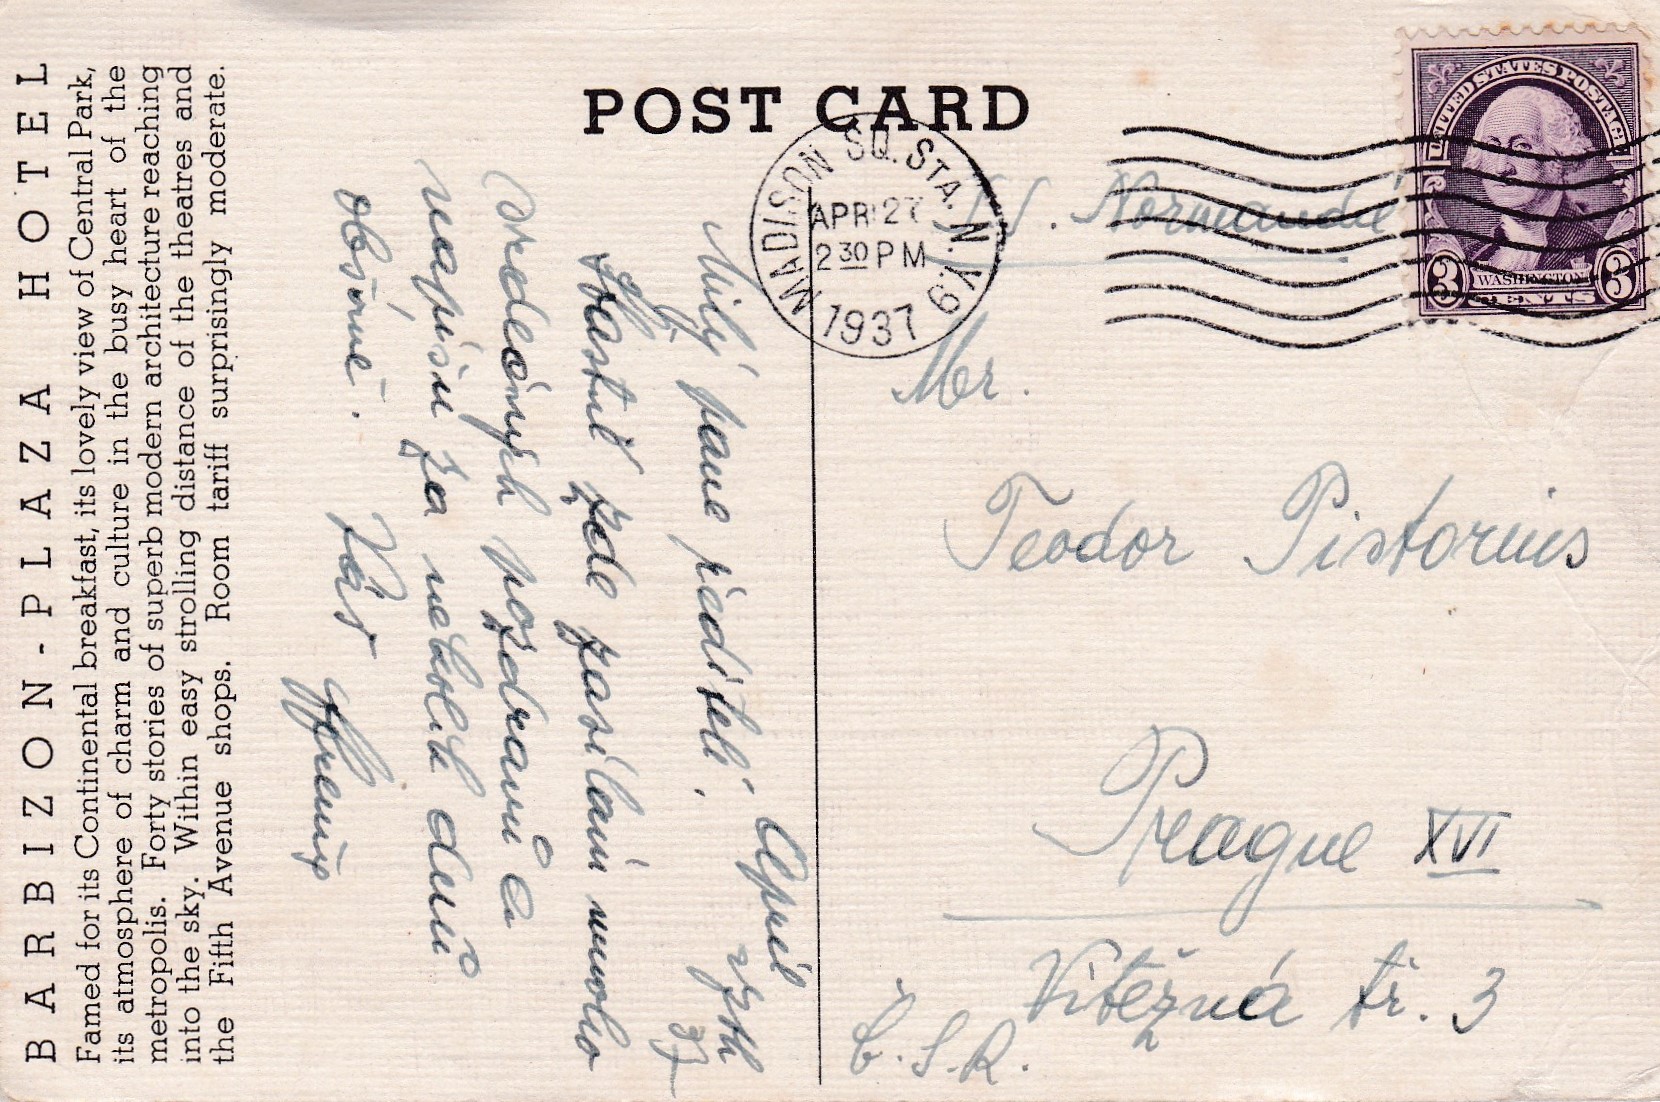 BARBIZON-PLAZA HOTEL
Famed for its Continental breakfast, its lovely view of Central Park,
its atmosphere of charm and culture in the busy heart of the
metropolis. Forty stories of superb modern architecture reaching
into the sky. Within easy strolling distance of the theatres and
the Fifth Avenue shops. Room tariff surprisingly moderate.
POST CARD
MADISON SQ. STA. N.Y. 9
APR 27
2 30 PM
1937
UNITED STATES POSTAGE
3 WASHINGTON 3
CENTS
April
37
Milý pane řediteli.
Šťastně zde zasílám mnoho
srdečných pozdravů a
napíši za několik dnů
obšírně. Váš
S/S. Normandie
Mr.
Teodor Pistorius
Prague XVI
Vítězná tř. 3
Č.S.R.